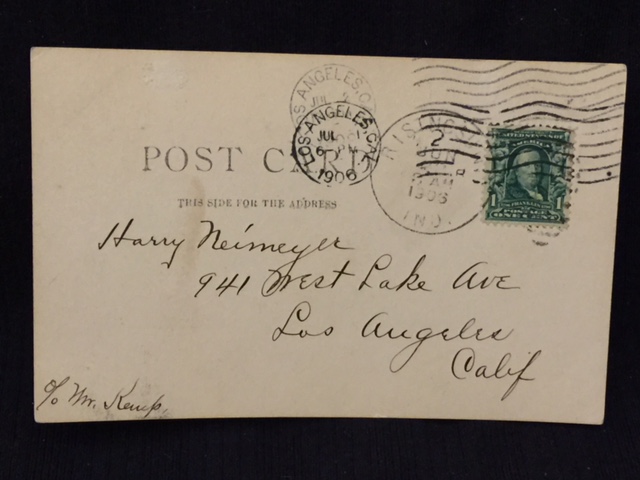 LOS ANGELES, CAL.
JUL
LOS ANGELES, CAL.
JUL 1
6 PM
1906
RISING
2
AM
1906
IND.
POST CARD
THIS SIDE FOR THE ADDRESS
1 POSTAGE 1
ONE CENT
Harry Neimeyer
941 West Lake Ave
Los Angeles
Calif
c/o Mr. Kemp.